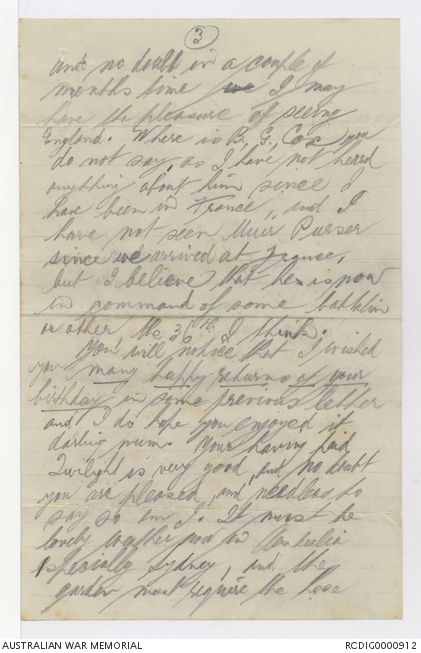 3
and no doubt in a couple of
months time we I may
have the pleasure of seeing
England. Where is B, G, Cox you
do not say, as I have not heard
anything about him since I
have been in France, and I
have not seen Muir Purser
since we arrived at France,
but I believe that he is now
in command of some battalion
or other the 30th I think.
You will notice that I wished
you many happy returns of your
birthday in some previous letter
and I do hope you enjoyed it
darling mum. Your having paid
Twilight is very good, and no doubt
you are pleased, and needless to
say so am I. It must be
lovely weather now in Australia
specially Sydney, and the
garden must require the hose
AUSTRALIAN WAR MEMORIAL
RCDIG0000912